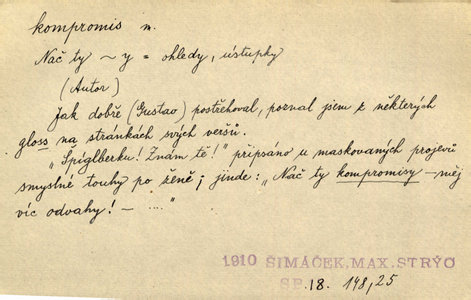 kompromis m.
Nač ty ~ y = ohledy, ústupky
(Autor)
Jak dobře (Gustav) postřehoval, poznal jsem z některých
gloss na stránkách svých veršů.
„Špíglberku! Znám tě!" připsáno u maskovaných projevů
smyslné touhy po ženě; jinde: „Nač ty kompromisy – měj
víc odvahy! – ...."
1910 ŠIMÁČEK, MAX. STRÝC
SP. 18. 148, 25